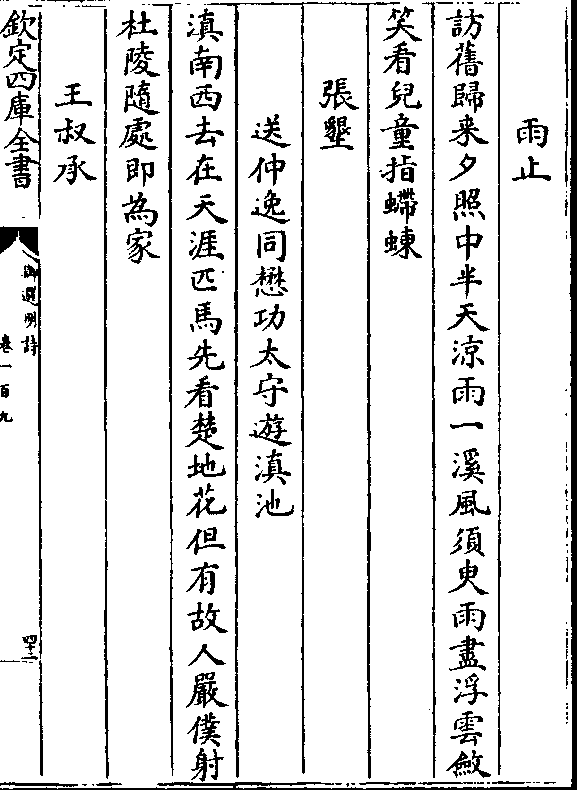 雨止
訪舊歸来夕照中半天涼雨一溪風須臾雨盡浮雲斂
笑看兒童指螮蝀
張墾
送仲逸同懋功太守遊滇池
滇南西去在天涯匹馬先看楚地花但有故人嚴僕射
杜陵隨處即為家
王叔承
欽定四庫全書
御選明詩
卷一百九
四十二